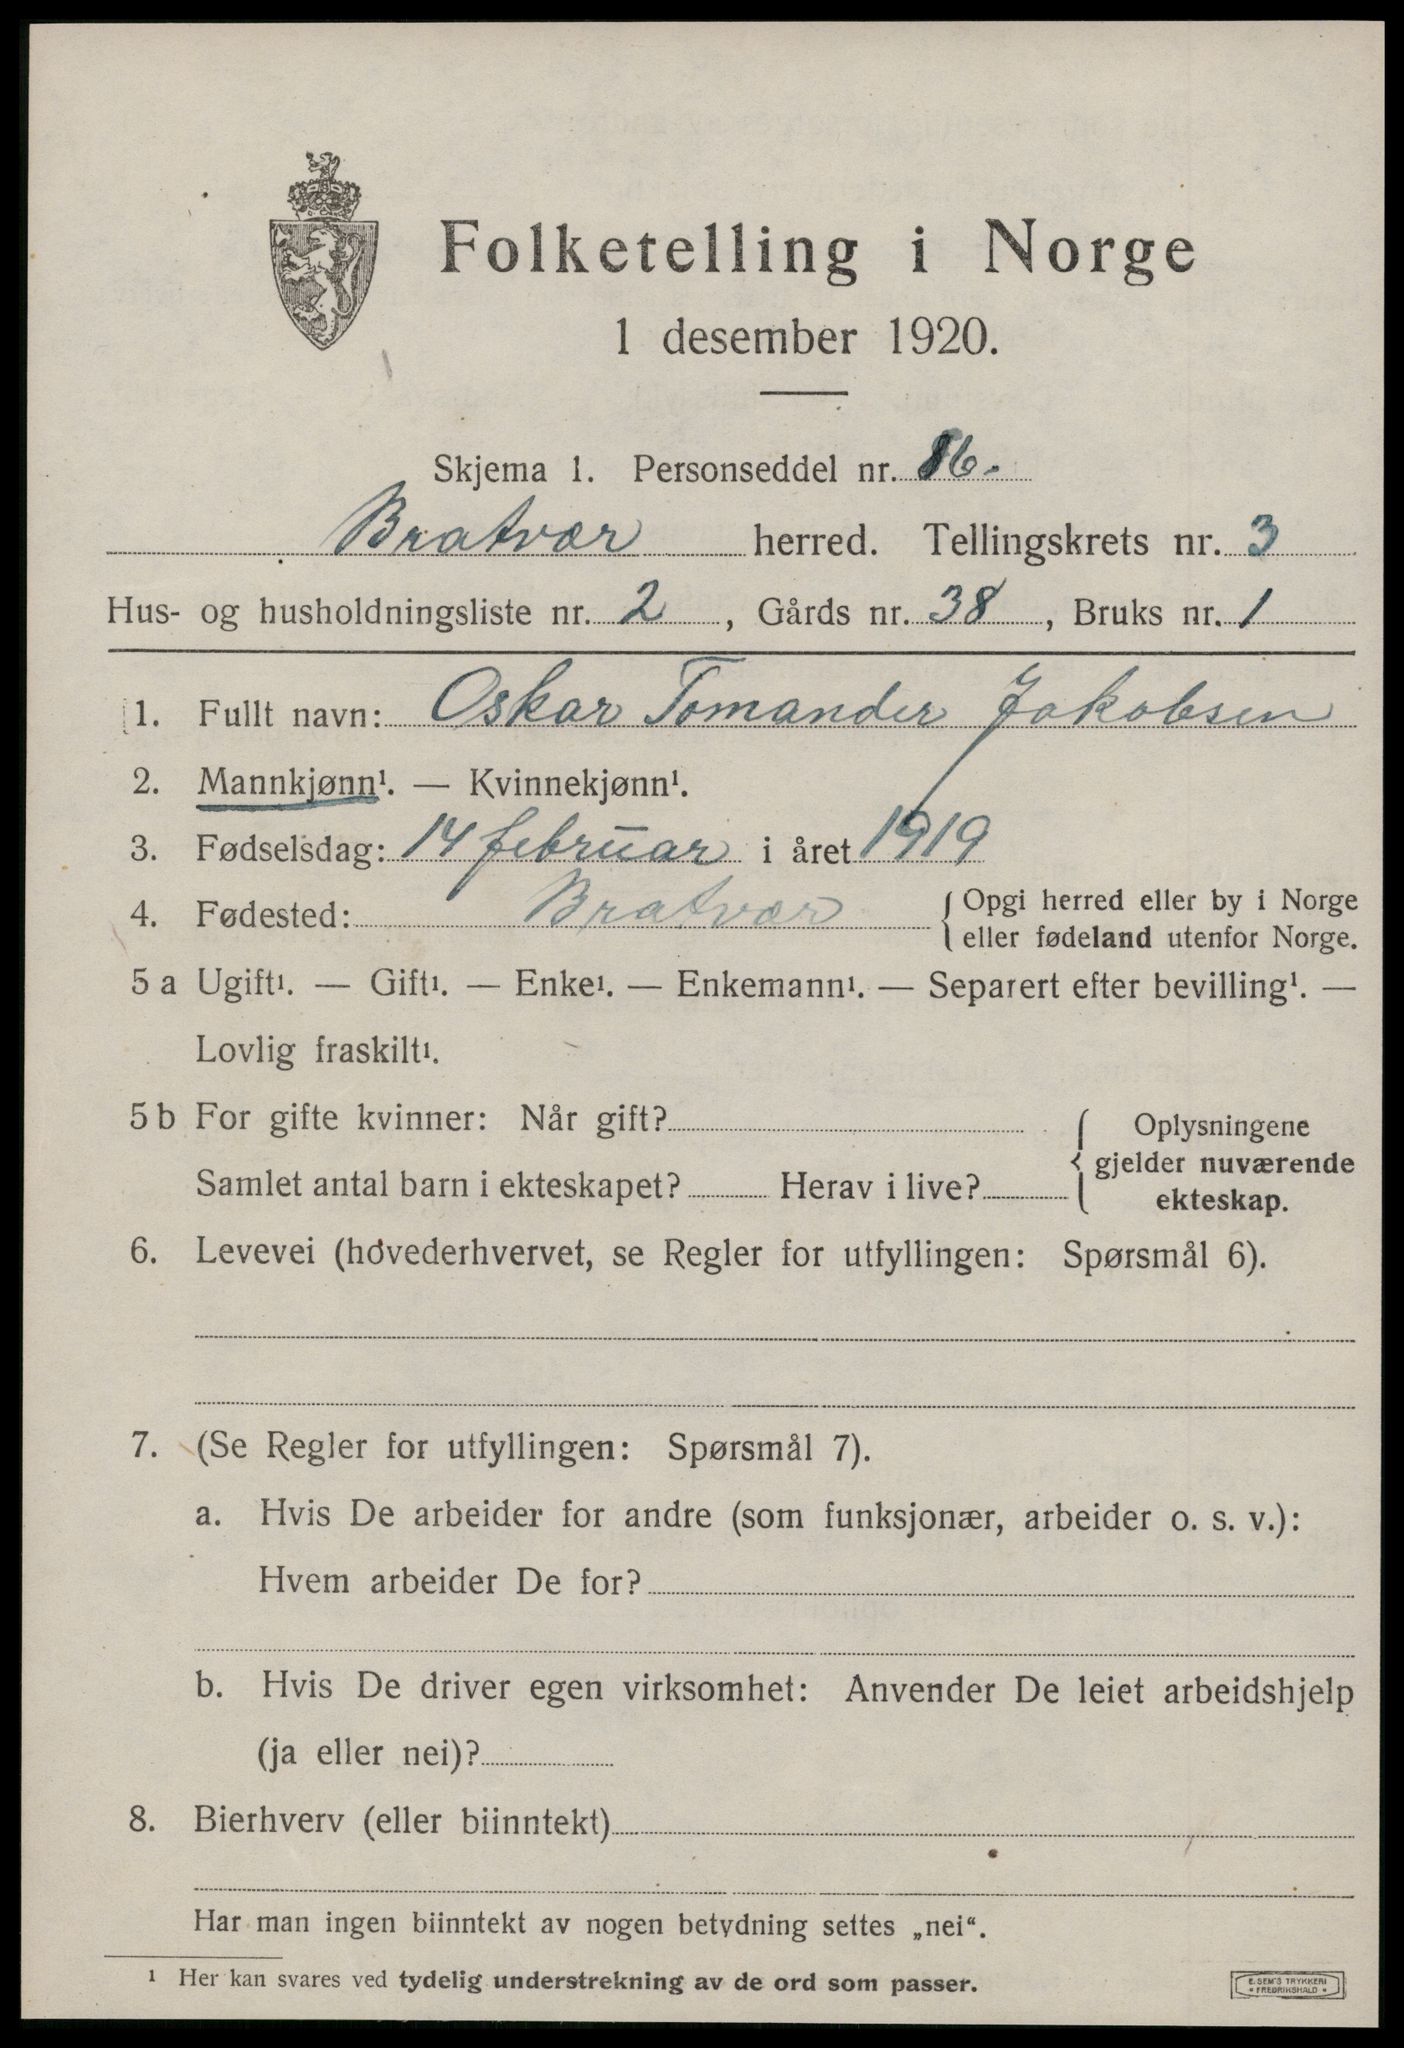 Folketelling i Norge
1 desember 1920.
Skjema 1. Personseddel nr. 86.
Bratvær herred. Tellingskrets nr. 3
Hus- og husholdningsliste nr. 2, Gårds nr. 38, Bruks nr. 1
1. Fullt navn: Oskar Tomander Jakobsen
2. Mannkjønn¹. — Kvinnekjønn¹.
3. Fødselsdag: 14 februar i året 1919
4. Fødested: Bratvær { Opgi herred eller by i Norge
eller fødeland utenfor Norge.
5 a Ugift¹. — Gift¹. — Enke¹. — Enkemann¹. — Separert efter bevilling¹. —
Lovlig fraskilt¹.
5 b For gifte kvinner: Når gift?
Samlet antal barn i ekteskapet? Herav i live?
{ Oplysningene
gjelder nuværende
ekteskap.
6. Levevei (hovederhvervet, se Regler for utfyllingen: Spørsmål 6).
7. (Se Regler for utfyllingen: Spørsmål 7).
a. Hvis De arbeider for andre (som funksjonær, arbeider o. s. v.):
Hvem arbeider De for?
b. Hvis De driver egen virksomhet: Anvender De leiet arbeidshjelp
(ja eller nei)?
8. Bierhverv (eller biinntekt)
Har man ingen biinntekt av nogen betydning settes „nei“.
¹ Her kan svares ved tydelig understrekning av de ord som passer.
E. SEM'S TRYKKERI
• FREDRIKSHALD •